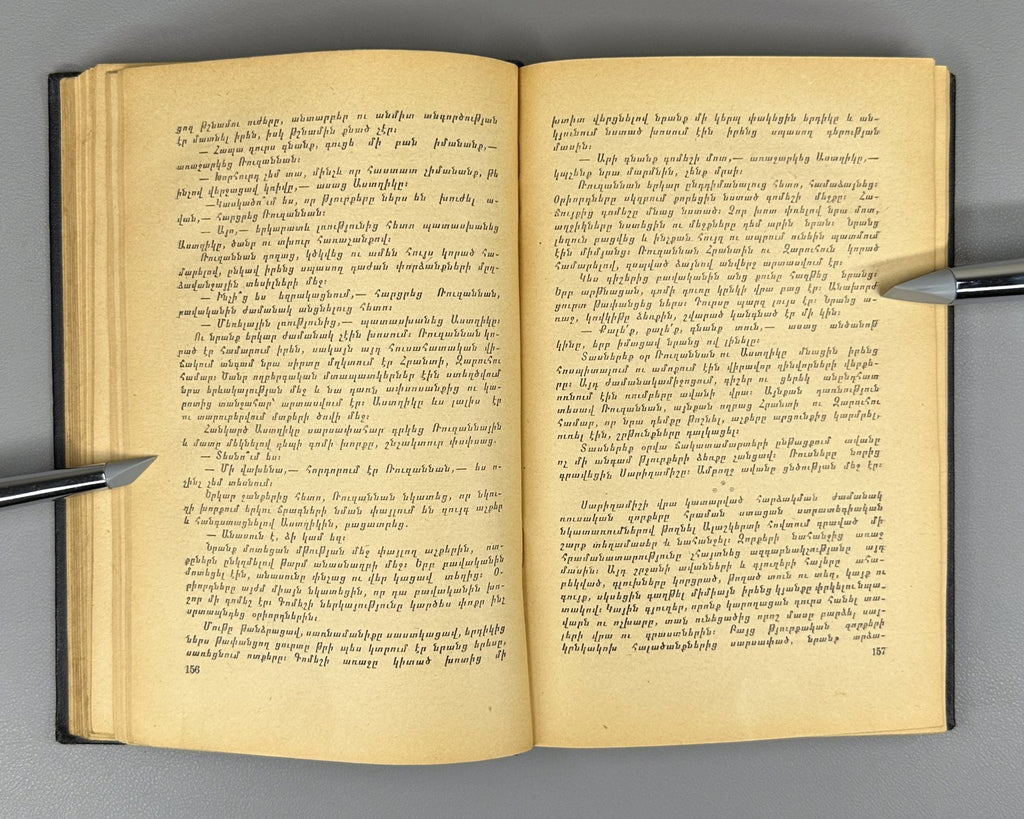 ցող թշնամու ուժերը, անտարբեր ու անմիտ անգործության
էր մատնել իրեն, իսկ թշնամին քնած չէր։
— Հապա դուրս գնանք, գուցե մի բան իմանանք,—
առաջարկեց Ռուզաննան։
— Խորհուրդ չեմ տա, մինչև որ հաստատ չիմանանք, թե
ինչով վերջացավ կռիվը,— ասաց Աստղիկը։
—Կասկածո՞ւմ ես, որ թյուրքերը ներս են խուժել ա-
վան,— հարցրեց Ռուզաննան։
— Այո,— երկարատև լռությունից հետո պատասխանեց
Աստղիկը, ծանր ու տխուր հառաչանքով։
Ռուզաննան դողաց, կծկվեց ու ամեն հույս կորած հա-
մարելով, ընկավ իրենց սպասող դաժան փորձանքների մղ-
ձավանջային տեսիլների մեջ։
— Ինչի՞ց ես եզրակացնում,— հարցրեց Ռուզաննան,
բավականին ժամանակ անցնելուց հետո։
— Մեռելային լռությունից,— պատասխանեց Աստղիկը։
Ու նրանք երկար ժամանակ չէին խոսում։ Ռուզաննան կո-
րած էր համարում իրեն, սակայն այդ հուսահատական վի-
ճակում անգամ նրա սիրտը մղկտում էր Հրանտի, Զարուհու
համար։ Մանր ողբերգական մտապատկերներ էին ստեղծվում
նրա երևակայության մեջ և նա դառն ափսոսանքից ու կա-
րոտից տանջահար՝ արտասվում էր։ Աստղիկը ևս լալիս էր
ու տարուբերվում մտքերի ծովի մեջ։
Հանկարծ Աստղիկը սարսափահար գրկեց Ռուզաննային
և մատը մեկնելով դեպի գոմի խորքը, շնչակտուր փսփսաց.
— Տեսնո՞ւմ ես։
— Մի վախենա,— հորդորում էր Ռուզաննան,— ես ո-
չինչ չեմ տեսնում։
Երկար ջանքերից հետո, Ռուզաննան նկատեց, որ նկու-
ղի խորքում երկու ճրագների նման փայլում են զույգ աչքեր
և հանգստացնելով Աստղիկին, բացատրեց.
— Անասուն է, ձի կամ եզ։
Նրանք մոտեցան մթության մեջ փայլող աչքերին, ոտ-
քերնին ընկղմելով թարմ անասնաղբի մեջ։ Երբ բավականին
մոտեցել էին, անասունը փնչաց ու վեր կացավ տեղից։ Օ-
րիորդները այժմ միայն նկատեցին, որ դա բավականին խո-
շոր մի գոմեշ էր։ Գոմեշի ներկայությունը կարծես փոքր ինչ
սրտապնդեց օրիորդներին։
Մութը թանձրացավ, սառնամանիքը սաստկացավ, երդիկից
ներս թափանցող ցուրտը թրի պես կտրում էր նրանց երեսը,
սառեցնում ոտքերը։ Գոմեշի առաջը կիտած խոտից մի
156
խտիտ վերցնելով նրանք մի կերպ փակեցին երդիկը և ան-
կյունում նստած խոսում էին իրենց սպասող դերության
մասին։
— Արի գնանք գոմեշի մոտ,— առաջարկեց Աստղիկը,—
կպչենք նրա մարմնին, չենք մրսի։
Ռուզաննան երկար ընդդիմանալուց հետո, համաձայնեց։
Օրիորդները սկզբում քորեցին նստած գոմեշի մեջքը։ Հա-
ճույքից գոմեշը մնաց նստած։ Չոր խոտ փռելով նրա մոտ,
աղջիկները նստեցին ու մեջքները դեմ արին նրան։ Նրանց
լեզուն բացվեց և ինչքան հույզ ու ապրում ունեին պատմում
էին միմյանց։ Ռուզաննան Հրանտին ու Զարուհուն կորած
համարելով, զսպված ձայնով անվերջ արտասվում էր։
Կես գիշերից բավականին անց քունը հաղթեց նրանց։
Երբ արթնացան, գոմի դուռը կրնկի վրա բաց էր։ Անախորժ
ցուրտը թափանցեց ներս։ Դուրսը պարզ լույս էր։ Նրանց ա-
ռաջ, կովկիթը ձեռքին, շվարած կանգնած էր մի կին։
— Քայլե՛ք, քայլե՛ք, գնանք տուն,— ասաց անծանոթ
կինը, երբ իմացավ նրանց ով լինելը։
Տասներեք օր Ռուզաննան ու Աստղիկը մնացին իրենց
հոսպիտալում ու ամոքում էին վիրավոր զինվորների վերքե-
րը։ Այդ ժամանակամիջոցում, գիշեր ու ցերեկ անընդհատ
ոռնում էին ռումբերը ավանի վրա։ Այնքան դառնություն
տեսավ Ռուզաննան, այնքան ողբաց Հրանտի ու Զարուհու
համար, որ նրա դեմքը թոշնել, աչքերը արցունքից կարմրել,
ուռել էին, շրթունքները դալկացել։
Տասներեք օրվա ճակատամարտերի ընթացքում ավանը
ոչ մի անգամ թյուրքերի ձեռքը չանցավ։ Ռուսները նորից
գրավեցին Սարիղամիշը։ Ամբողջ ավանը ցնծության մեջ էր։
* * *
Սարիղամիշի վրա կատարված հարձակման ժամանակ
ռուսական զորքերը հրաման ստացան ստրատեգիական
նկատառումներով թողնել Ալաշկերտի հովտում գրաված մի
շարք տեղամասեր և նահանջել։ Զորքերի նահանջից առաջ
հրամանատարությունը չհայտնեց ազգաբնակչությանը այդ
մասին։ Այդ շրջանի ավանների և գյուղերի հայերը ահա-
բեկված, գլուխները կորցրած, թողած տուն ու տեղ, կայք ու
գույք, սկսեցին գաղթել միմիայն իրենց կյանքը փրկելու նպա-
տակով։ Կային գյուղեր, որոնք կարողացան դուրս հանել տա-
վարն ու ոչխարը, տան ունեցածից որոշ մասը բարձել սայ-
լերի վրա ու գրաստներին։ Բայց թյուրքական զորքերի
կրնկակոխ հալածանքներից սարսափած, նրանք արձա-
157